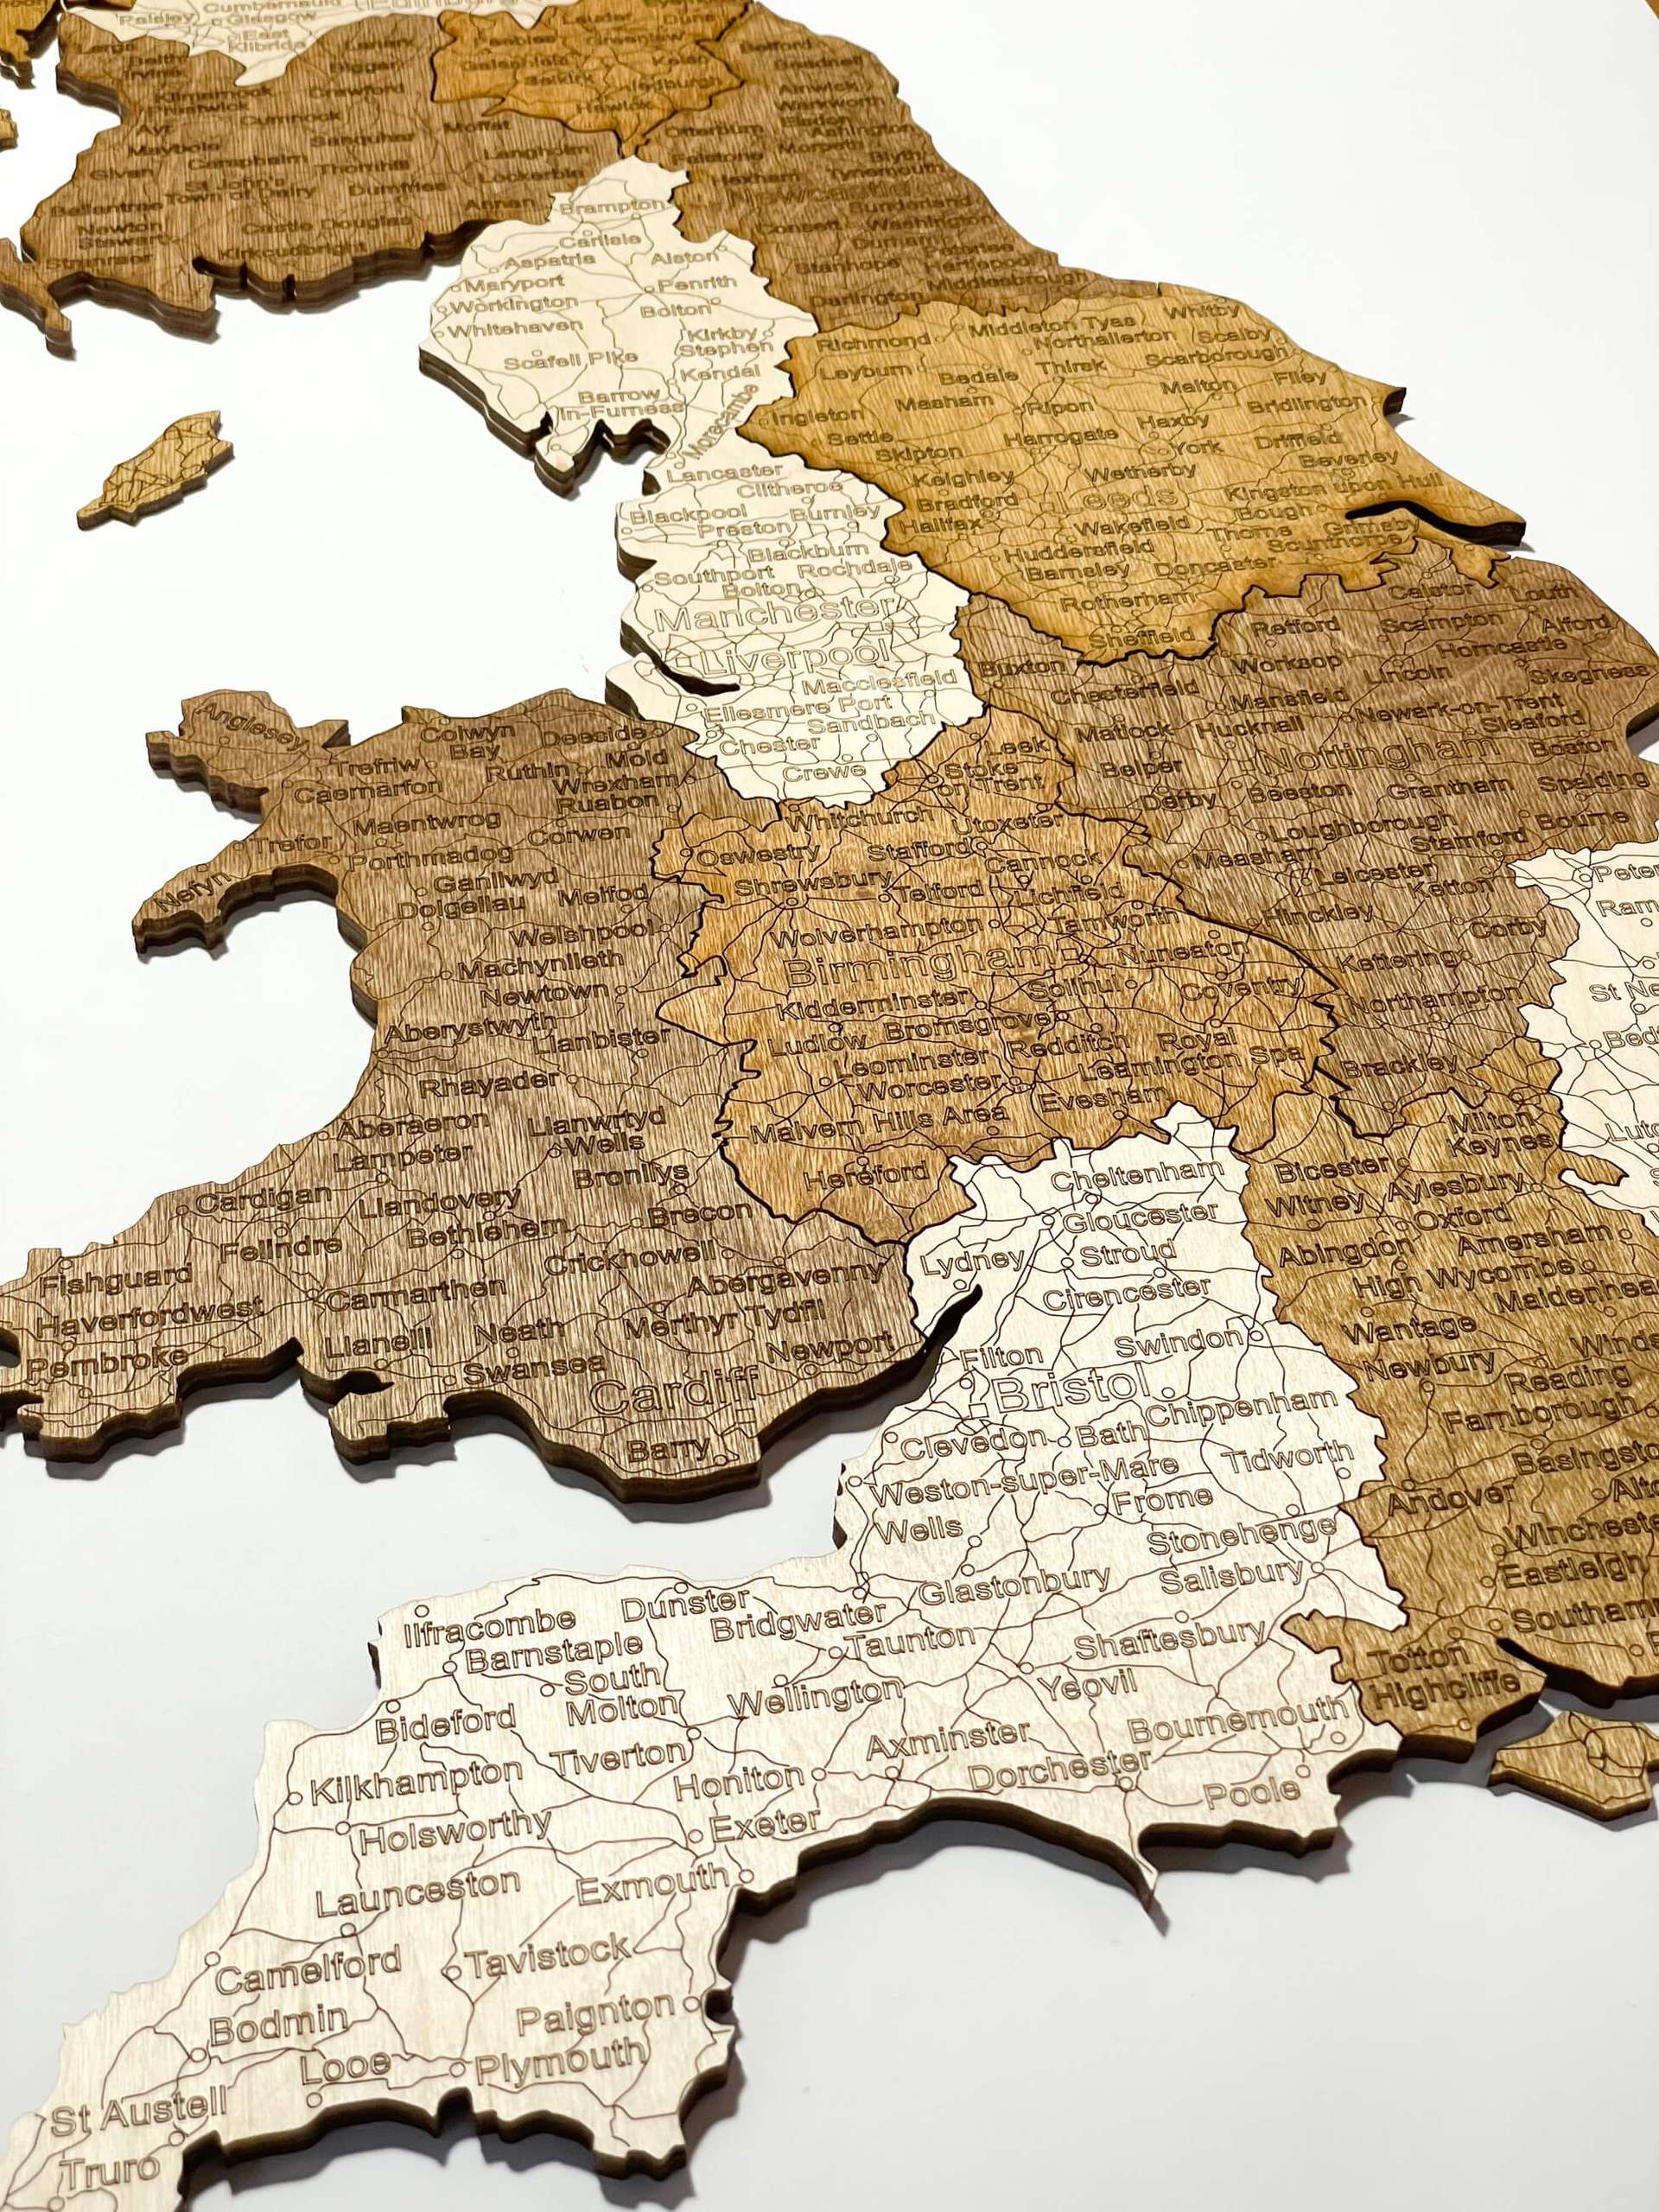 Cumbernauld
Paisley
Glasgow
East
Kilbride
Lauder
Duns
Peebles
Greenlaw
Galashiels
Kelso
Selkirk
Jedburgh
Hawick
Belford
Beadnell
Alnwick
Warkworth
Ashington
Morpeth
Blyth
Tynemouth
Otterburn
Falstone
Hexham
Sunderland
Washington
Consett
Durham
Peterlee
Stanhope
Hartlepool
Middlesbrough
Darlington
Lanark
Biggar
Irvine
Kilmarnock
Prestwick
Crawford
Cumnock
Ayr
Sanquhar
Moffat
Maybole
Carsphairn
Thornhill
Langholm
Lockerbie
Girvan
St John's
Town of Dalry
Dumfries
Annan
Ballantrae
Newton
Stewart
Castle Douglas
Kirkcudbright
Stranraer
Brampton
Carlisle
Aspatria
Alston
Maryport
Penrith
Workington
Bolton
Whitehaven
Kirkby
Stephen
Scafell Pike
Kendal
Barrow
In-Furness
Morecambe
Lancaster
Clitheroe
Blackpool
Burnley
Preston
Blackburn
Southport
Rochdale
Bolton
Manchester
Liverpool
Macclesfield
Ellesmere Port
Sandbach
Chester
Crewe
Richmond
Middleton Tyas
Whitby
Northallerton
Scalby
Leyburn
Bedale
Thirsk
Scarborough
Masham
Malton
Filey
Ingleton
Ripon
Haxby
Bridlington
Settle
Harrogate
York
Driffield
Skipton
Beverley
Keighley
Wetherby
Bradford
Leeds
Kingston upon Hull
Halifax
Wakefield
Gough
Thorne
Grimsby
Scunthorpe
Huddersfield
Barnsley
Doncaster
Rotherham
Sheffield
Caistor
Louth
Retford
Scampton
Alford
Buxton
Worksop
Horncastle
Lincoln
Skegness
Chesterfield
Mansfield
Newark-on-Trent
Matlock
Hucknall
Sleaford
Nottingham
Boston
Belper
Derby
Beeston
Grantham
Spalding
Loughborough
Bourne
Stamford
Measham
Leicester
Ketton
Hinckley
Corby
Kettering
Northampton
Brackley
Anglesey
Colwyn
Bay
Deeside
Trefriw
Mold
Ruthin
Wrexham
Caernarfon
Ruabon
Maentwrog
Corwen
Trefor
Porthmadog
Nefyn
Ganllwyd
Meifod
Dolgellau
Welshpool
Machynlleth
Newtown
Aberystwyth
Llanbister
Rhayader
Aberaeron
Llanwrtyd
Wells
Lampeter
Bronllys
Cardigan
Llandovery
Brecon
Bethlehem
Felindre
Crickhowell
Fishguard
Abergavenny
Carmarthen
Haverfordwest
Merthyr Tydfil
Llanelli
Neath
Newport
Pembroke
Swansea
Cardiff
Barry
Leek
Stoke
on-Trent
Whitchurch
Utoxeter
Oswestry
Stafford
Cannock
Shrewsbury
Telford
Lichfield
Wolverhampton
Tamworth
Birmingham
Nuneaton
Kidderminster
Solihul
Coventry
Bromsgrove
Ludlow
Redditch
Royal
Leamington Spa
Leominster
Worcester
Evesham
Malvern Hills Area
Hereford
Peter
Ram
St Ne
Bed
Luto
Milton
Keynes
Bicester
Witney
Aylesbury
Oxford
Abingdon
Amersham
High Wycombe
Maidenhea
Wantage
Winds
Newbury
Reading
Farnborough
Basingsto
Andover
Alto
Wincheste
Eastleigh
Southam
Totton
Highcliffe
Cheltenham
Gloucester
Lydney
Stroud
Cirencester
Swindon
Filton
Bristol
Chippenham
Clevedon
Bath
Tidworth
Weston-super-Mare
Frome
Wells
Stonehenge
Glastonbury
Salisbury
Ilfracombe
Dunster
Bridgwater
Barnstaple
Taunton
Shaftesbury
South
Molton
Yeovil
Bideford
Wellington
Axminster
Bournemouth
Kilkhampton
Tiverton
Honiton
Dorchester
Poole
Holsworthy
Exeter
Launceston
Exmouth
Camelford
Tavistock
Bodmin
Paignton
Looe
Plymouth
St Austell
Truro